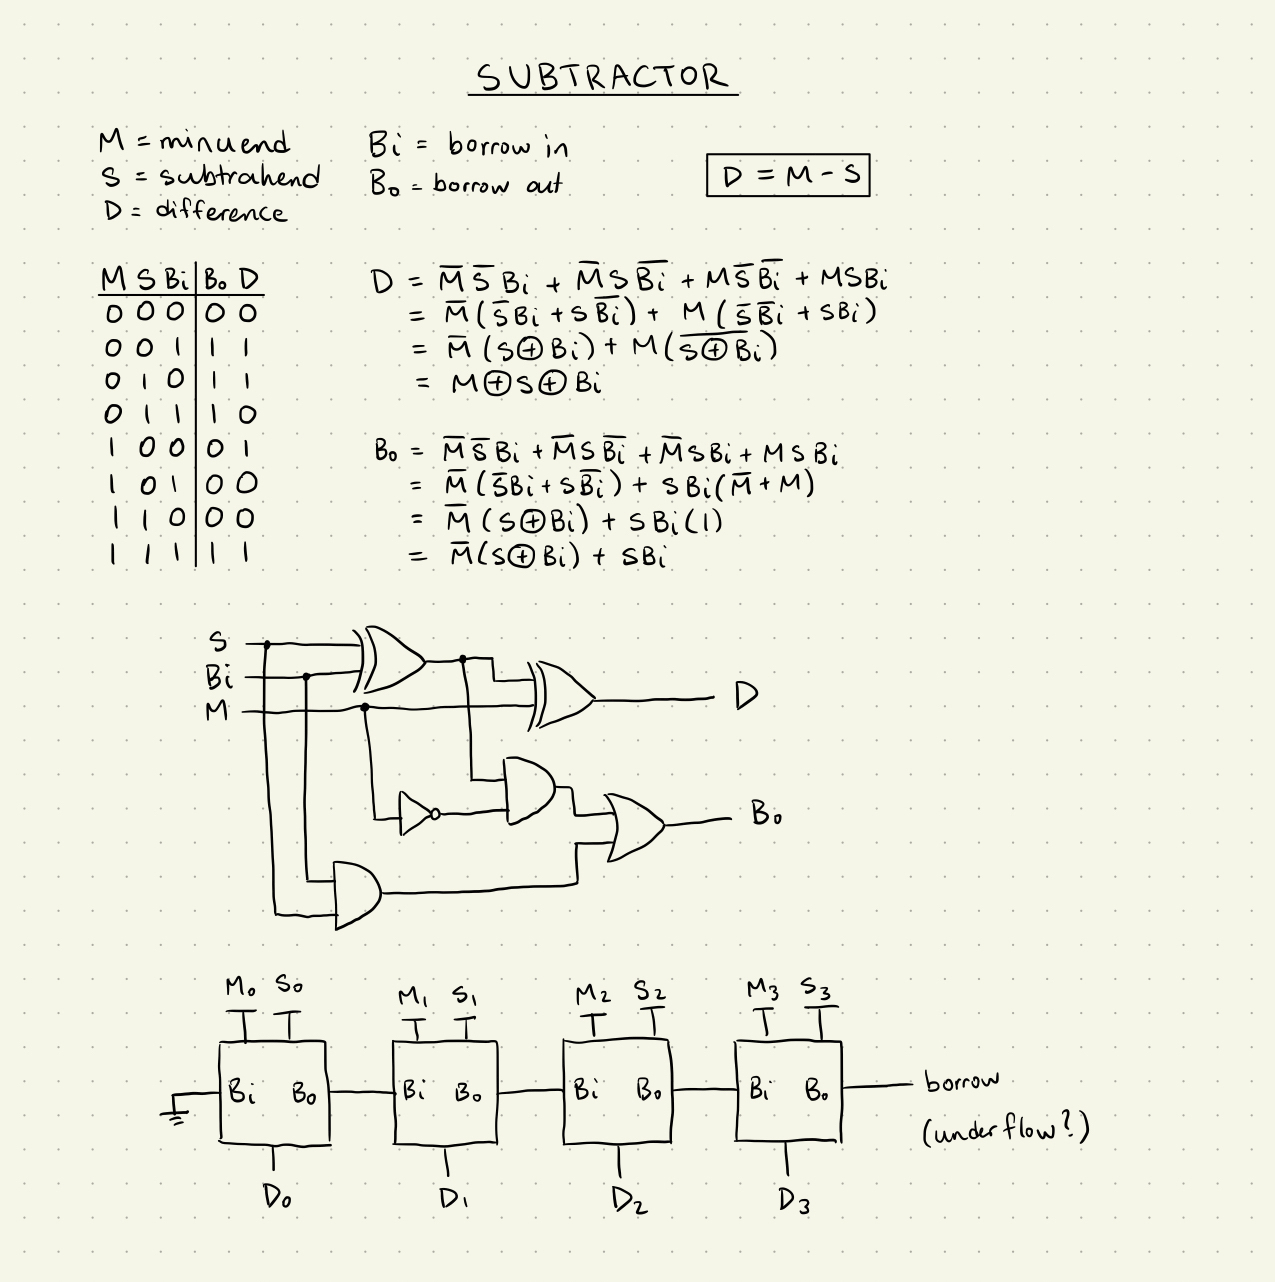 SUBTRACTOR
M = minuend
S = subtrahend
D = difference
Bi = borrow in
Bo = borrow out
D = M - S
M S Bi Bo D
0 0 0 0 0
0 0 1 1 1
0 1 0 1 1
0 1 1 1 0
1 0 0 0 1
1 0 1 0 0
1 1 0 0 0
1 1 1 1 1
D = M̅ S̅ Bi + M̅ S B̅i̅ + M S̅ B̅i̅ + MSBi
= M̅ (S̅ Bi + S B̅i̅) + M (S̅ B̅i̅ + SBi)
= M̅ (S⊕Bi) + M(S̅⊕̅B̅i̅)
= M⊕S⊕Bi
Bo = M̅ S̅ Bi + M̅ S B̅i̅ + M̅ S Bi + M S Bi
= M̅ (S̅Bi + SB̅i̅) + S Bi(M̅ + M)
= M̅ (S⊕Bi) + S Bi(1)
= M̅(S⊕Bi) + SBi
S
Bi
M
D
Bo
M0 S0 M1 S1 M2 S2 M3 S3
Bi Bo Bi Bo Bi Bo Bi Bo borrow
(underflow?)
D0 D1 D2 D3